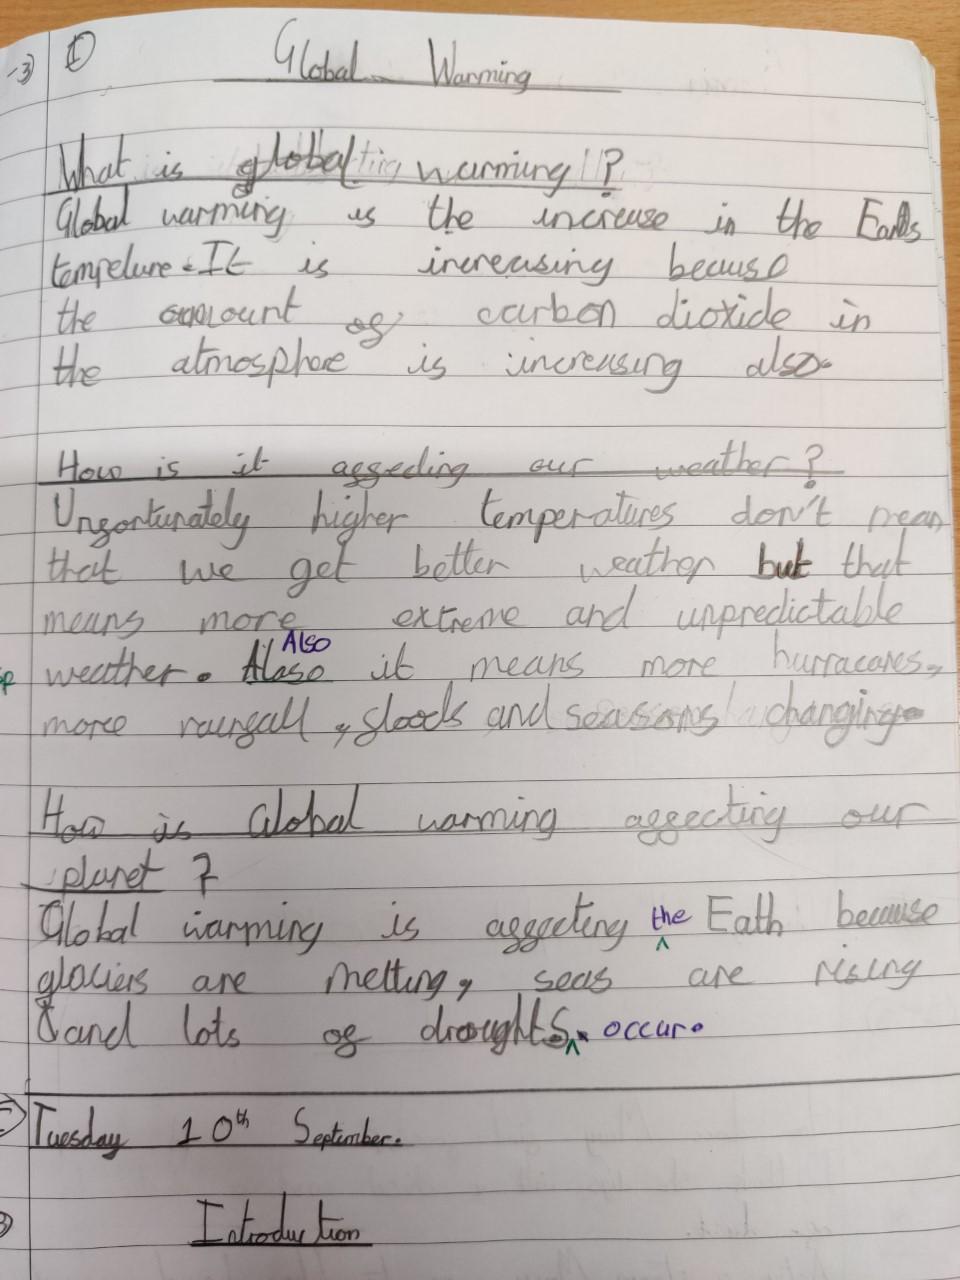 -3) ①
Global Warming
What is global warming?
Global warming is the increase in the Earths
tempelure. It is increasing becuuse
the amount of carbon dioxide in
the atmosphere is increasing also.
How is it affeding our weather?
Unfortunately higher temperatures don't mean
that we get better weather but that
means more extreme and unpredictable
Also
sp weather. Alaso it means more hurracanes,
more rainfall, floods and seasons changing.
How is Global warming affecting our
planet?
Global warming is affecting the Eath because
glaciers are melting, seas are rising
and lots of droughts occur.
Tuesday 10th September.
Introduction